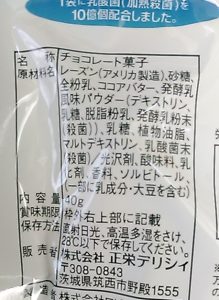 1袋に乳酸菌(加熱殺菌)を
10億個配合しました。
名称 チョコレート菓子
原材料名 レーズン(アメリカ製造)、砂糖、
全粉乳、ココアバター、発酵乳
風味パウダー(デキストリン、
乳糖、脱脂粉乳、発酵乳粉末
(殺菌))、乳糖、植物油脂、
マルトデキストリン、乳酸菌末
(殺菌)/光沢剤、酸味料、乳
化剤、香料、ソルビトール、
(一部に乳成分・大豆を含む)
内容量 40g
賞味期限 枠外右上部に記載
保存方法 直射日光、高温多湿をさけ、
28℃以下で保存してください。
販売者 株式会社 正栄デリシィ
〒308-0843
茨城県筑西市野殿1555